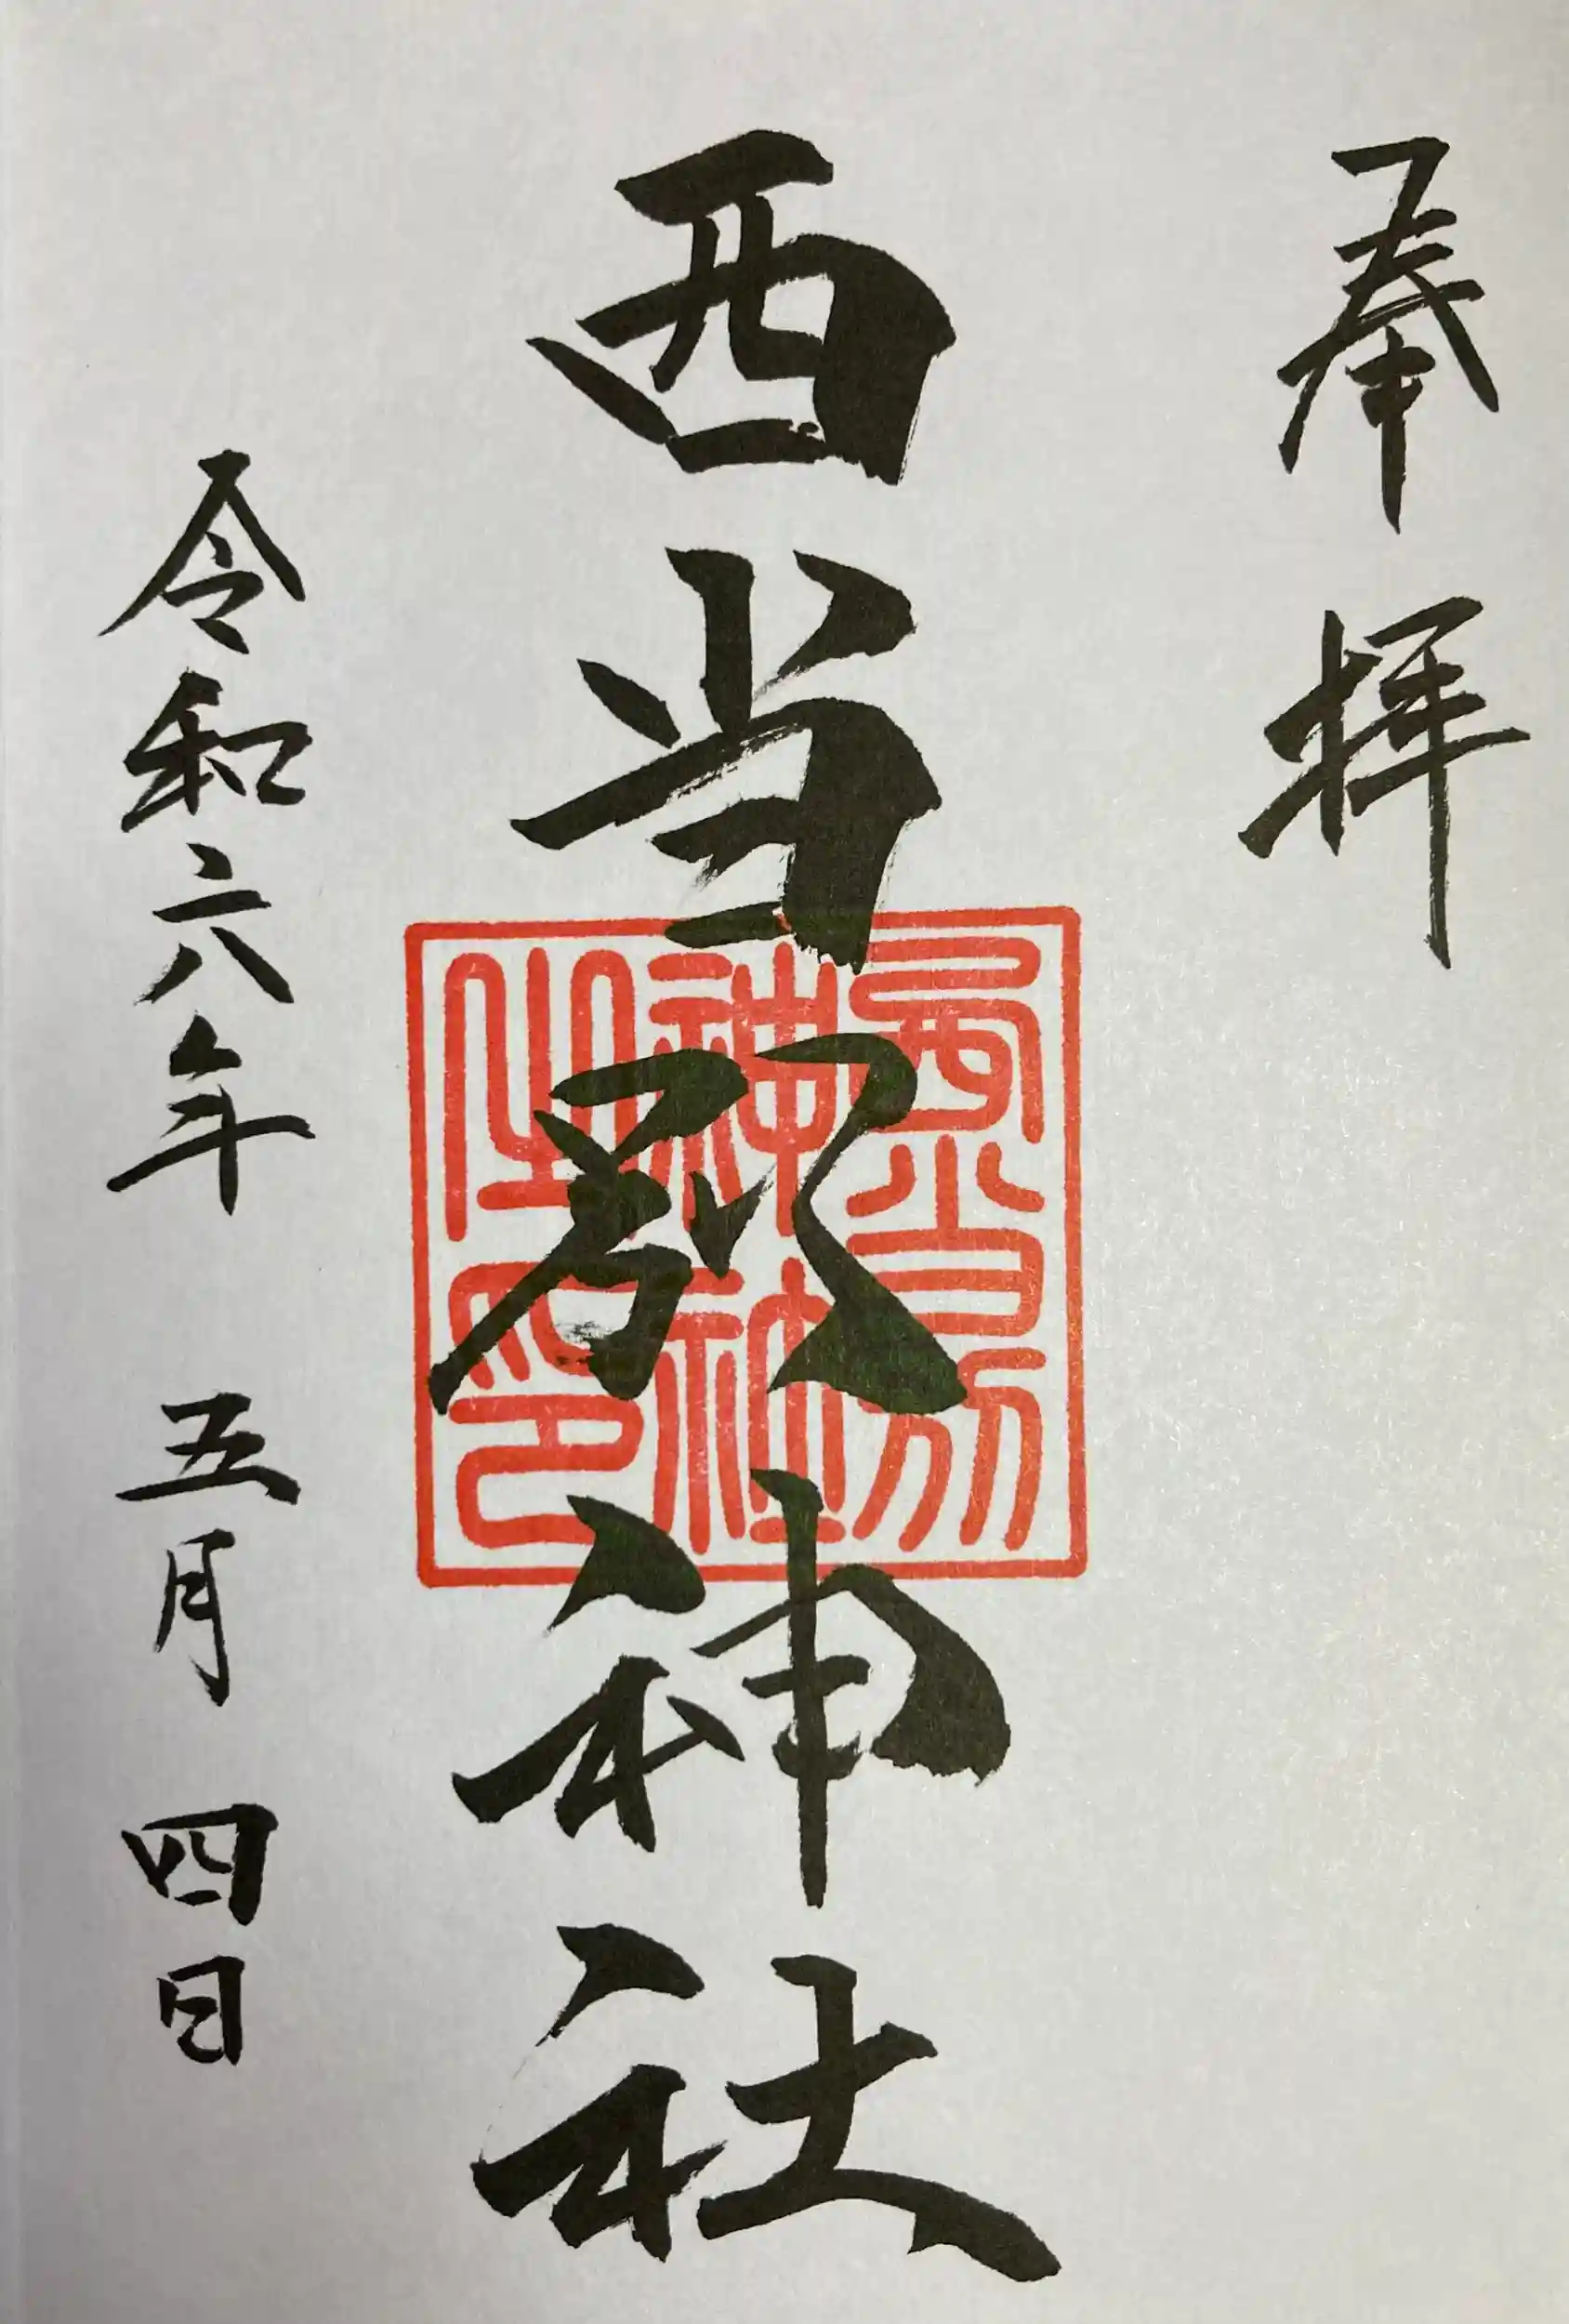 奉拝
西当別神社
令和六年 五月 四日
西当別
神社
之印